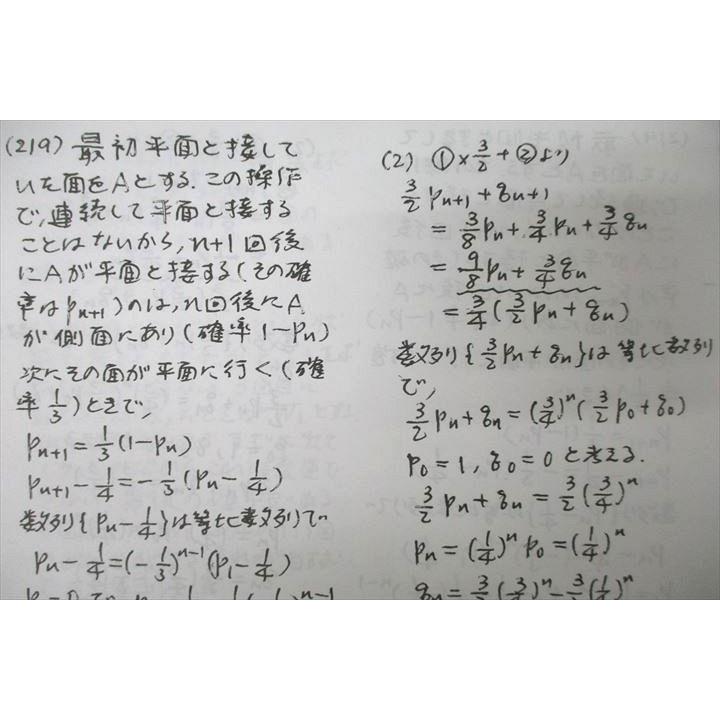 (219) 最初平面と接して
いた面をAとする.この操作
で,連続して平面と接する
ことはないから,n+1回後
にAが平面と接する(その確
率はp_{n+1})のは,n回後にA
が側面にあり(確率1-p_n)
次にその面が平面に行く(確
率1/3)ときで,
p_{n+1}=1/3(1-p_n)
p_{n+1}-1/4=-1/3(p_n-1/4)
数列{p_n-1/4}は等比数列で
p_n-1/4=(-1/3)^{n-1}(p_1-1/4)
(2) ①×3/2+②より
3/2p_{n+1}+q_{n+1}
=3/8p_n+3/4p_n+3/4q_n
=9/8p_n+3/4q_n
=3/4(3/2p_n+q_n)
数列{3/2p_n+q_n}は等比数列
で,
3/2p_n+q_n=(3/4)^n(3/2p_0+q_0)
p_0=1,q_0=0と考える.
3/2p_n+q_n=3/2(3/4)^n
p_n=(1/4)^n p_0=(1/4)^n
q_n=3/2(3/4)^n-3/2(1/4)^n